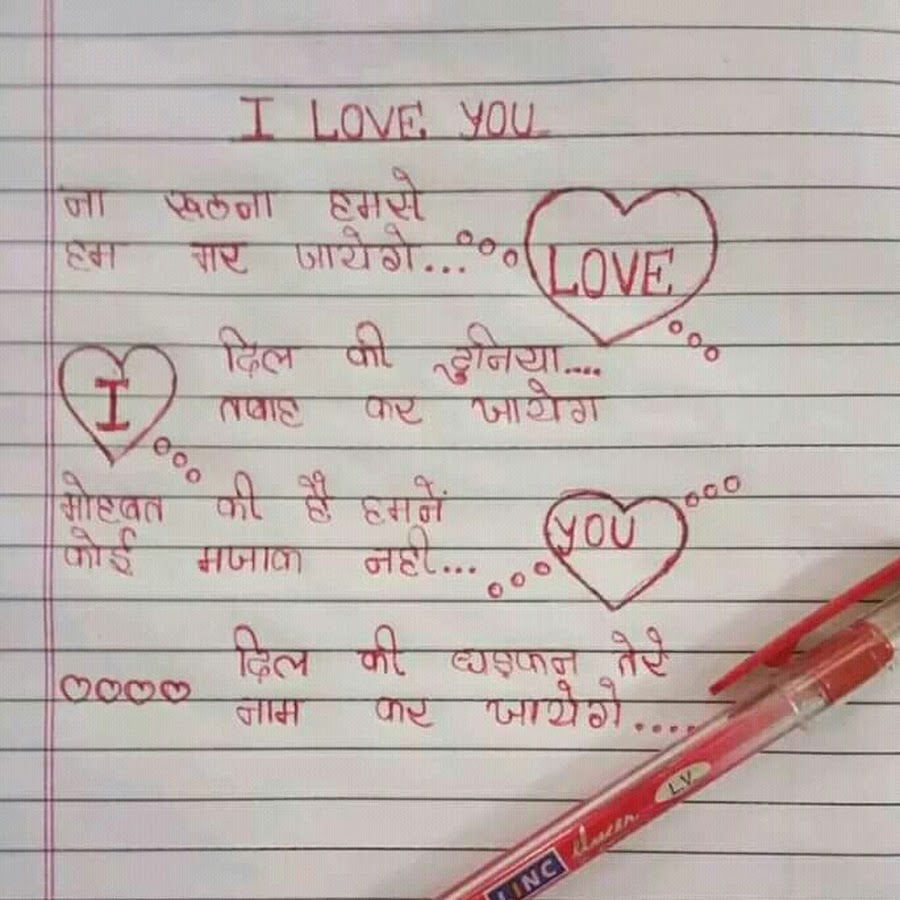 I LOVE YOU
ना खलना हमसे
हम मर जायेगे...
LOVE
दिल की दुनिया....
तबाह कर जायेग
I
मोहबत की है हमनें
कोई मजाक नही...
YOU
दिल की धड़कन तेरे
नाम कर जायेगे.....
LINC
LV